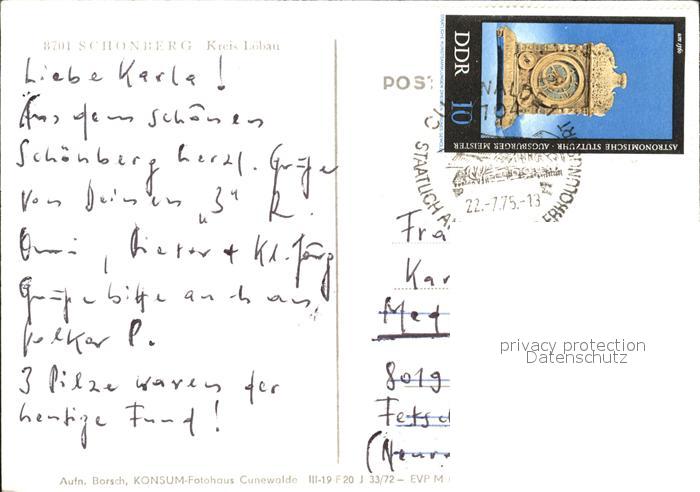 8701 SCHÖNBERG Kreis Löbau
Liebe Karla!
Aus dem schönen
Schönberg herzl. Grüße
von Deinen "3" R.
Omi, Dieter + Kl. Jörg
Grüße bitte auch an
Volker P.
3 Pilze waren der
heutige Fund!
POST
DDR 10
um 1560
ASTRONOMISCHE STUTZUHR · AUGSBURGER MEISTER
STAATLICH A
22.-7.75.-13
ERHOLUNGSORT
Fra
Kar
Med
8019
Fetsch
(Neur
privacy protection
Datenschutz
Aufn. Borsch, KONSUM-Fotohaus Cunewalde III-19 F 20 J 33/72 – EVP M